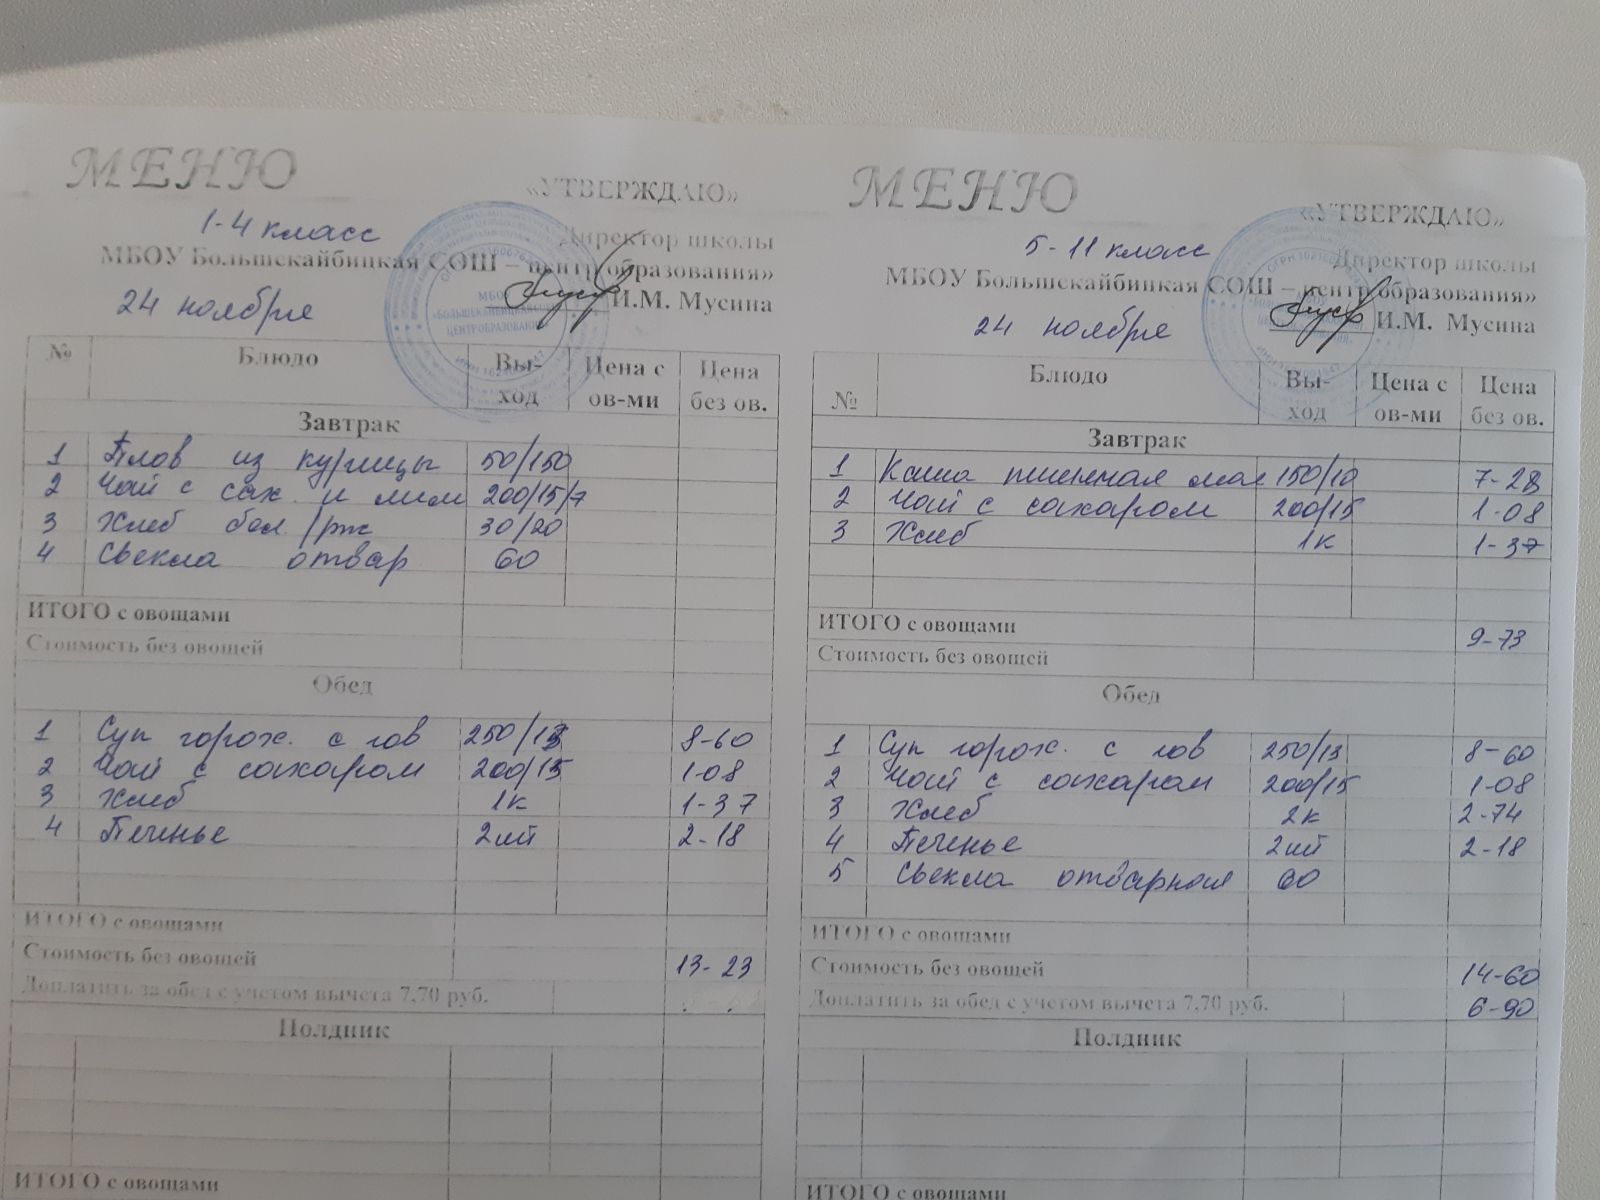 МЕНЮ
«УТВЕРЖДАЮ»
1-4 класс
Директор школы
МБОУ Большекайбицкая СОШ – центр образования»
24 ноября
И.М. Мусина
№ Блюдо Вы-ход Цена с ов-ми Цена без ов.
Завтрак
1 Плов из курицы 50/150
2 Чай с сах. и лим 200/15/7
3 Хлеб бел/рж 30/20
4 Свекла отвар 60
ИТОГО с овощами
Стоимость без овощей
Обед
1 Суп горох. с гов 250/13 8-60
2 Чай с сахаром 200/15 1-08
3 Хлеб 1к 1-37
4 Печенье 2шт 2-18
ИТОГО с овощами
Стоимость без овощей 13-23
Доплатить за обед с учетом вычета 7,70 руб.
Полдник
ИТОГО с овощами
МЕНЮ
«УТВЕРЖДАЮ»
5-11 класс
Директор школы
МБОУ Большекайбицкая СОШ – центр образования»
24 ноября
И.М. Мусина
№ Блюдо Вы-ход Цена с ов-ми Цена без ов.
Завтрак
1 Каша пшенная мол 150/10 7-28
2 Чай с сахаром 200/15 1-08
3 Хлеб 1к 1-37
ИТОГО с овощами 9-73
Стоимость без овощей
Обед
1 Суп горох. с гов 250/13 8-60
2 Чай с сахаром 200/15 1-08
3 Хлеб 2к 2-74
4 Печенье 2шт 2-18
5 Свекла отварная 60
ИТОГО с овощами
Стоимость без овощей 14-60
Доплатить за обед с учетом вычета 7,70 руб. 6-90
Полдник
ИТОГО с овощами